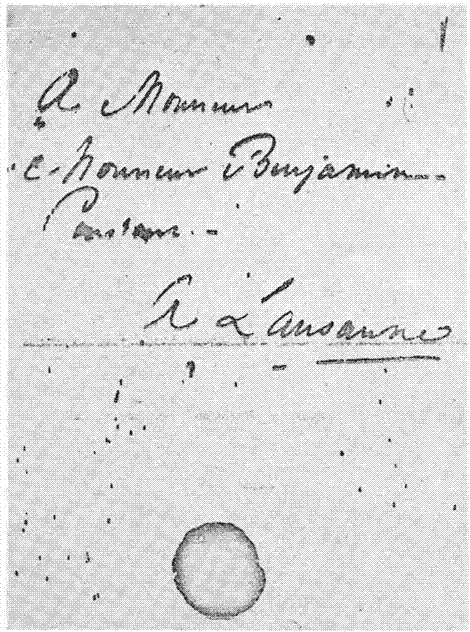 A Monsieur
Monsieur Benjamin
Constant. -
A Lausanne